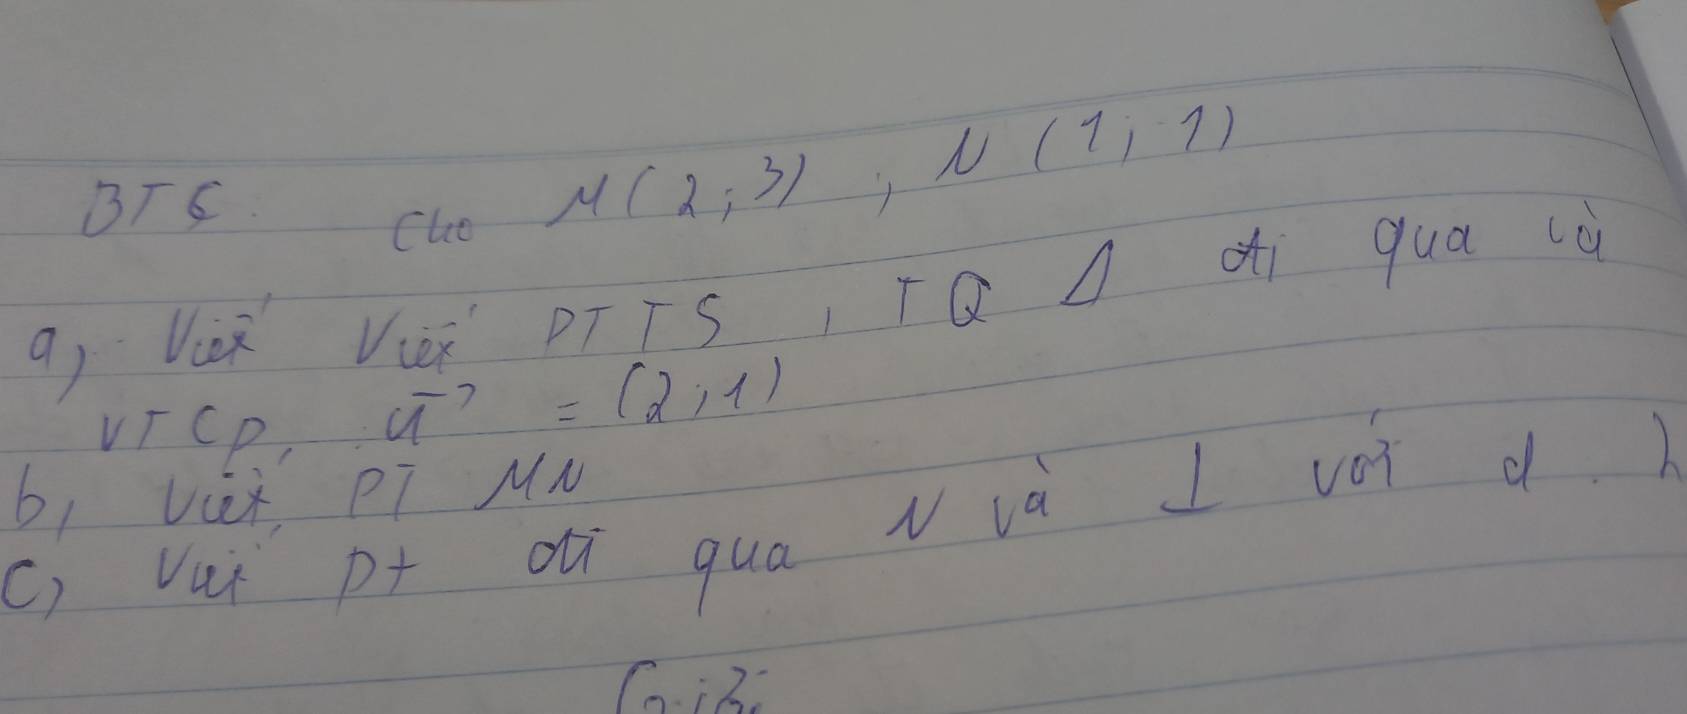 BT6. Cho M(2;3), N(1;-1)
a, Viết Viết PTTS, TQ Δ đi qua và
VTCP, u⃗ = (2;1)
b, Viết PT MN
c, Viết pt đi qua N và ⊥ với d.
Giải